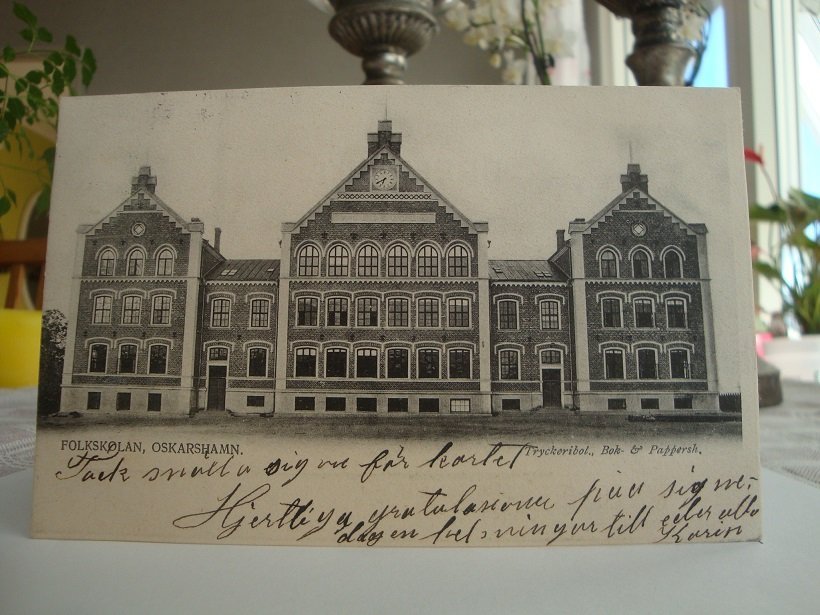 FOLKSKOLAN, OSKARSHAMN.
Tryckeribol., Bok- & Pappersh.
Tack snälla signe för kortet
Hjertliga gratulasione paa signe-
dagen helsningar till eder alla
Karin